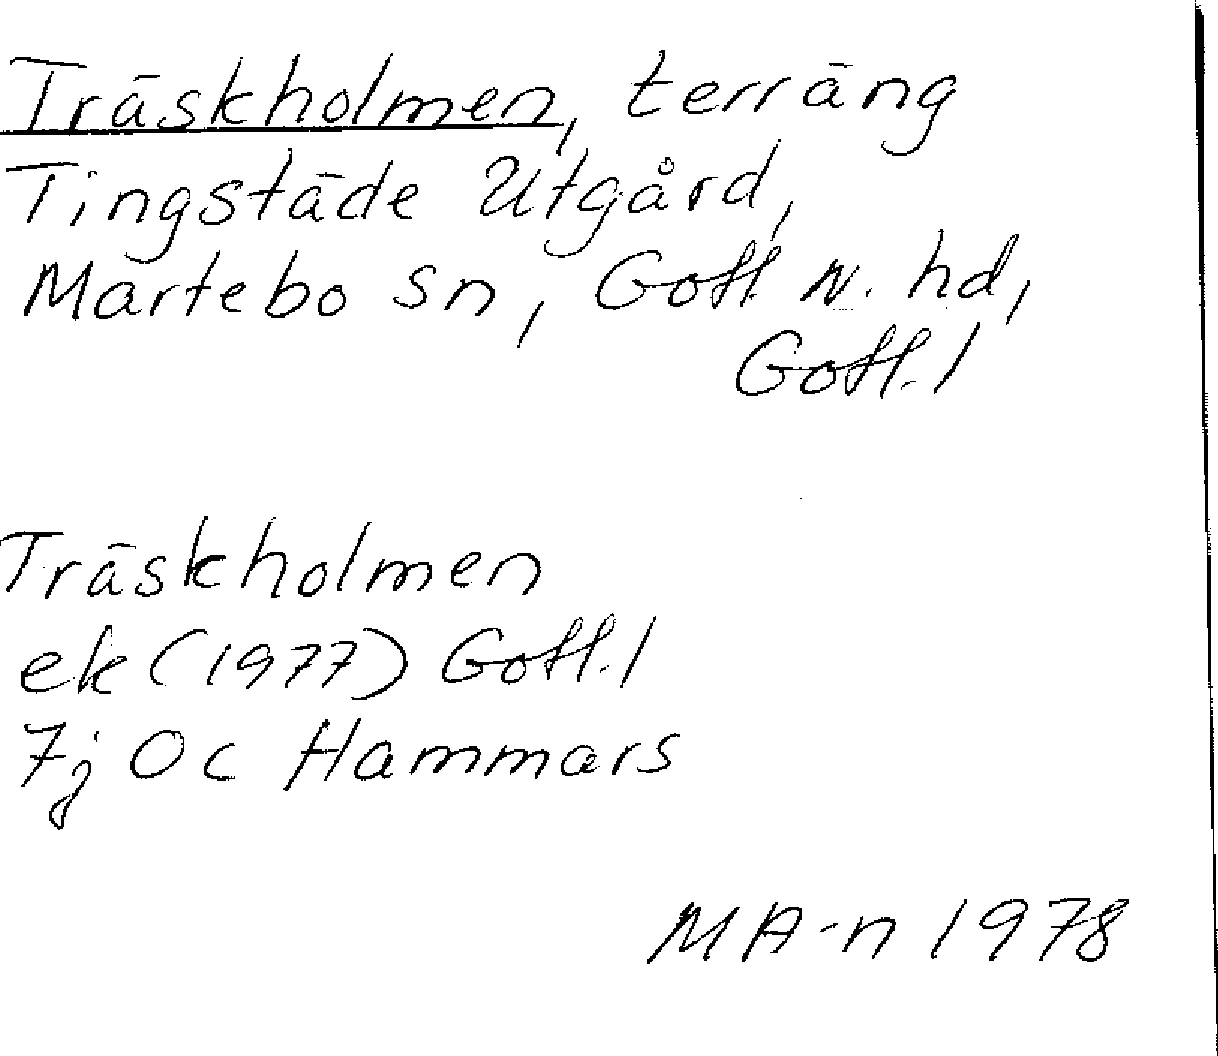 Träskholmen, terräng
Tingstäde Utgård,
Martebo sn, Gotl. N. hd,
Gotl. l
Träskholmen
ek (1977) Gotl. l
7j Oc Hammars
MA-n 1978